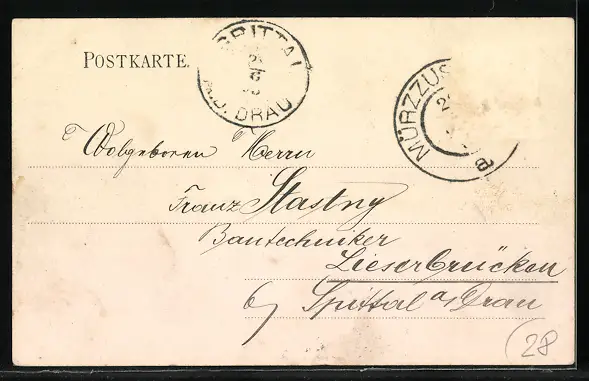 POSTKARTE.
SPITTAL
A.D. DRAU
MÜRZZUS
a
Wolgeboren Herrn
Franz Stastny
Bautechniker
Lieserbrücken
b/ Spittal a/Drau
(28